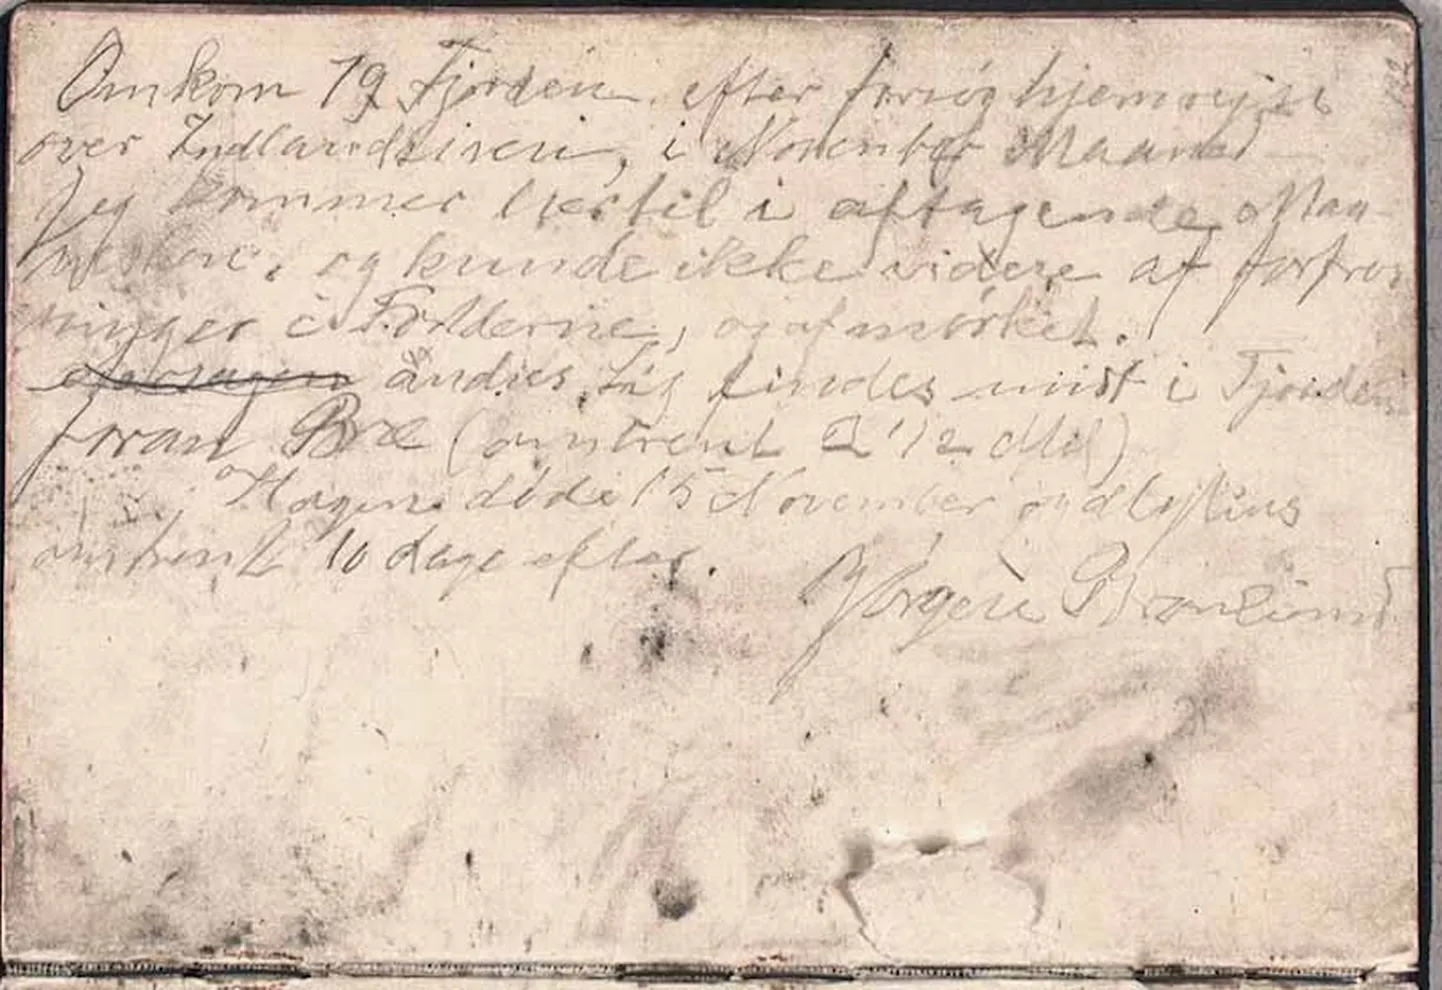 Omkom 79 Fjorden, efter forsøg hjemrejse
over Indlandsisen, i November Maaned
Jeg kommer hertil i aftagende Maa-
neskin, og kunde ikke videre af forfros
ninger i Fødderne, og af mørket.
andres Lig findes midt i Fjorden
foran Bræ (omtrent 2 1/2 Mil)
Hagen døde 15 November og Mylius
omtrent 10 dage efter.
Jørgen Brønlund